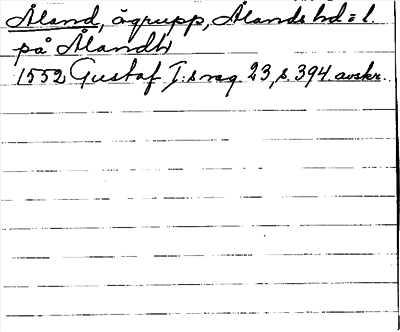 Åland, ögrupp, Ålands hd=l.
på Ålandh
1552 Gustaf I:s reg 23, s. 394 avskr.